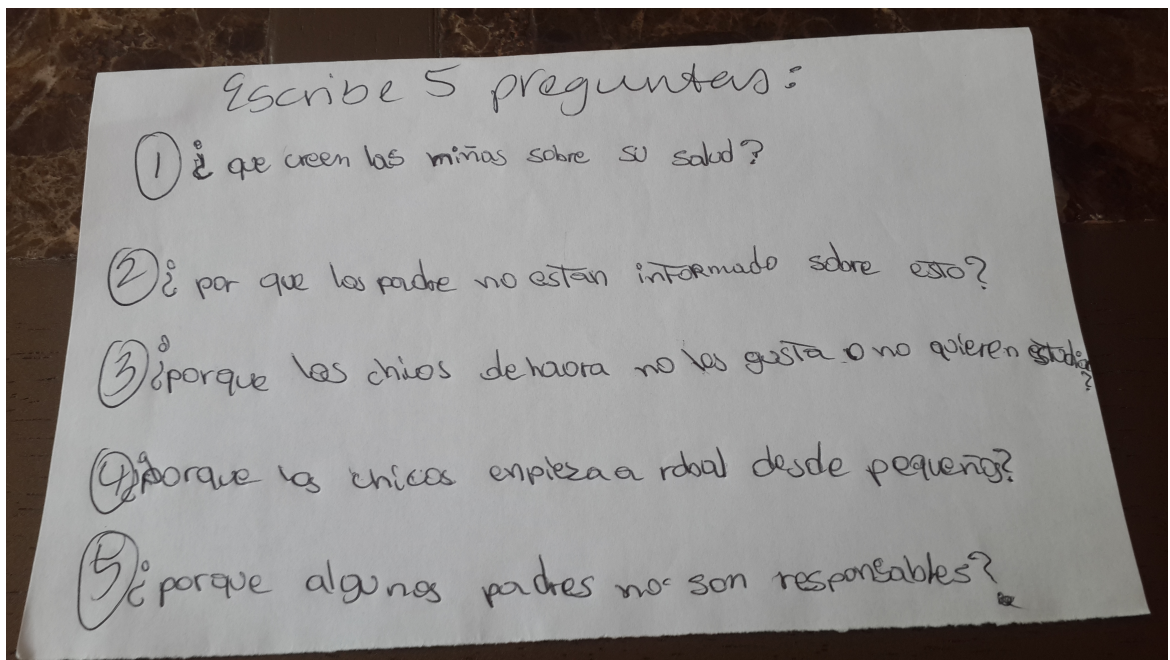 Escribe 5 preguntas:
1 ¿ que creen las miñas sobre su salud?
2 ¿ por que los padre no estan informado sobre esto?
3 ¿porque los chicos dehaora no les gusta o no quieren estudiar?
4 ¿porque los chicos enpieza a robal desde pequeño?
5 ¿porque algunos padres no son responsables?